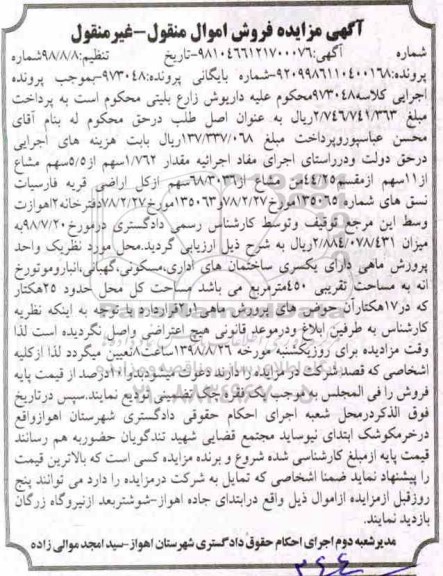 آگهی مزایده فروش اموال منقول-غیرمنقول
شماره آگهی:۹۸۱۰۴۶۶۱۲۱۷۰۰۰۷۶-تاریخ تنظیم:۹۸/۸/۸شماره
پرونده:۹۲۰۹۹۸۶۱۱۰۴۰۰۱۶۸-شماره بایگانی پرونده:۹۷۳۰۴۸-بموجب پرونده
اجرایی کلاسه۹۷۳۰۴۸محکوم علیه داریوش زارع بلیتی محکوم است به پرداخت
مبلغ ۲/۷۴۶/۷۴۱/۳۶۳ریال به عنوان اصل طلب درحق محکوم له بنام آقای
محسن عباسپوروپرداخت مبلغ ۱۳۷/۳۳۷/۰۶۸ریال بابت هزینه های اجرایی
درحق دولت ودرراستای اجرای مفاد اجرائیه مقدار ۱/۷۶۲سهم از۵/۵سهم مشاع
از۱۱سهم ازمقسم۴۴/۲۵من مشاع از۶۸۳۰۳۶سهم ازکل اراضی قریه فارسیات
نسق های شماره ۱۳۵۰۶۵مورخ۷۸/۲/۲۷و۱۳۵۰۶۳مورخ۷۸/۲/۲۷دفترخانه۲اهوازت
وسط این مرجع توقیف وتوسط کارشناس رسمی دادگستری درمورخ۹۸/۷/۲۰به
میزان ۲/۸۸۴/۰۷۸/۴۳۱ریال به شرح ذیل ارزیابی گردید.محل مورد نظریک واحد
پرورش ماهی دارای یکسری ساختمان های اداری،مسکونی،گهبانی،انباروموتورخ
انه به مساحت تقریبی ۴۵۰مترمربع می باشد مساحت کل محل حدود ۲۵هکتار
که در۱۷هکتارآن حوض های پرورش ماهی قراردارد با توجه به اینکه نظریه
کارشناس به طرفین ابلاغ ودرموعد قانونی هیچ اعتراضی واصل نگردیده است لذا
وقت مزایده برای روزیکشنبه مورخه ۱۳۹۸/۸/۲۶ساعت۸تعیین میگردد لذا ازکلیه
اشخاصی که قصد شرکت در مزایده را دارند دعوت میشود۱۰درصد از قیمت پایه
فروش را فی المجلس به موجب یک فقره چک تضمینی تودیع نمایند.سپس درتاریخ
فوق الذکردرمحل شعبه اجرای احکام حقوقی دادگستری شهرستان اهوازواقع
درخرمکوشک ابتدای نیوساید مجتمع قضایی شهید تندگویان حضوربه هم رسانند
قیمت پایه ازمبلغ کارشناسی شده شروع و برنده مزایده کسی است که بالاترین قیمت
را پیشنهاد نماید ضمنا اشخاصی که تمایل به شرکت درمزایده را دارد می توانند پنج
روزقبل ازمزایده ازاموال ذیل واقع درابتدای جاده اهواز-شوشتربعد ازنیروگاه زرگان
بازدید نمایند.
مدیرشعبه دوم اجرای احکام حقوق دادگستری شهرستان اهواز-سید امجد موالی زاده